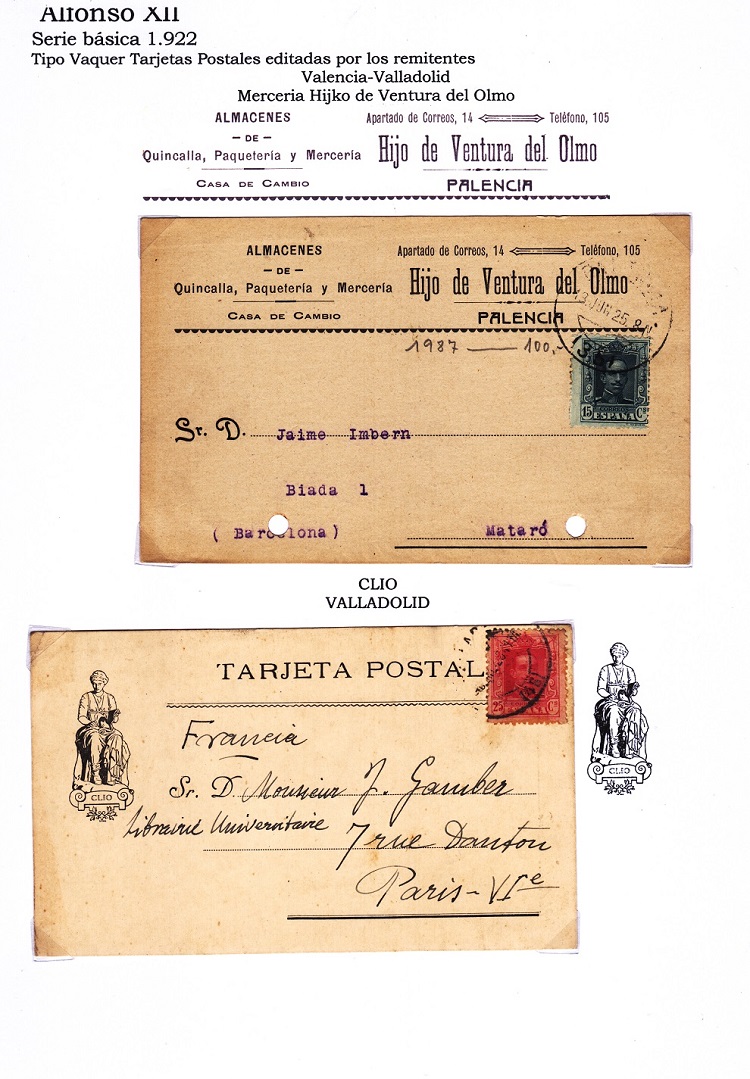 Alfonso XII
Serie básica 1.922
Tipo Vaquer Tarjetas Postales editadas por los remitentes
Valencia-Valladolid
Merceria Hijko de Ventura del Olmo
ALMACENES
– DE –
Quincalla, Paquetería y Mercería
CASA DE CAMBIO
Apartado de Correos, 14 Teléfono, 105
Hijo de Ventura del Olmo
PALENCIA
ALMACENES
– DE –
Quincalla, Paquetería y Mercería
CASA DE CAMBIO
Apartado de Correos, 14 Teléfono, 105
Hijo de Ventura del Olmo
PALENCIA
1987 — 100,-
JUN 25
15 Cs
CORREOS
ESPAÑA
Sr. D. Jaime Imbern
Biada 1
( Barcelona ) Mataró
CLIO
VALLADOLID
TARJETA POSTAL
25 Cs
CLIO
Francia
Sr. D. Monsieur J. Gamber
Librairie Universitaire
7 rue Danton
Paris - VIe
CLIO